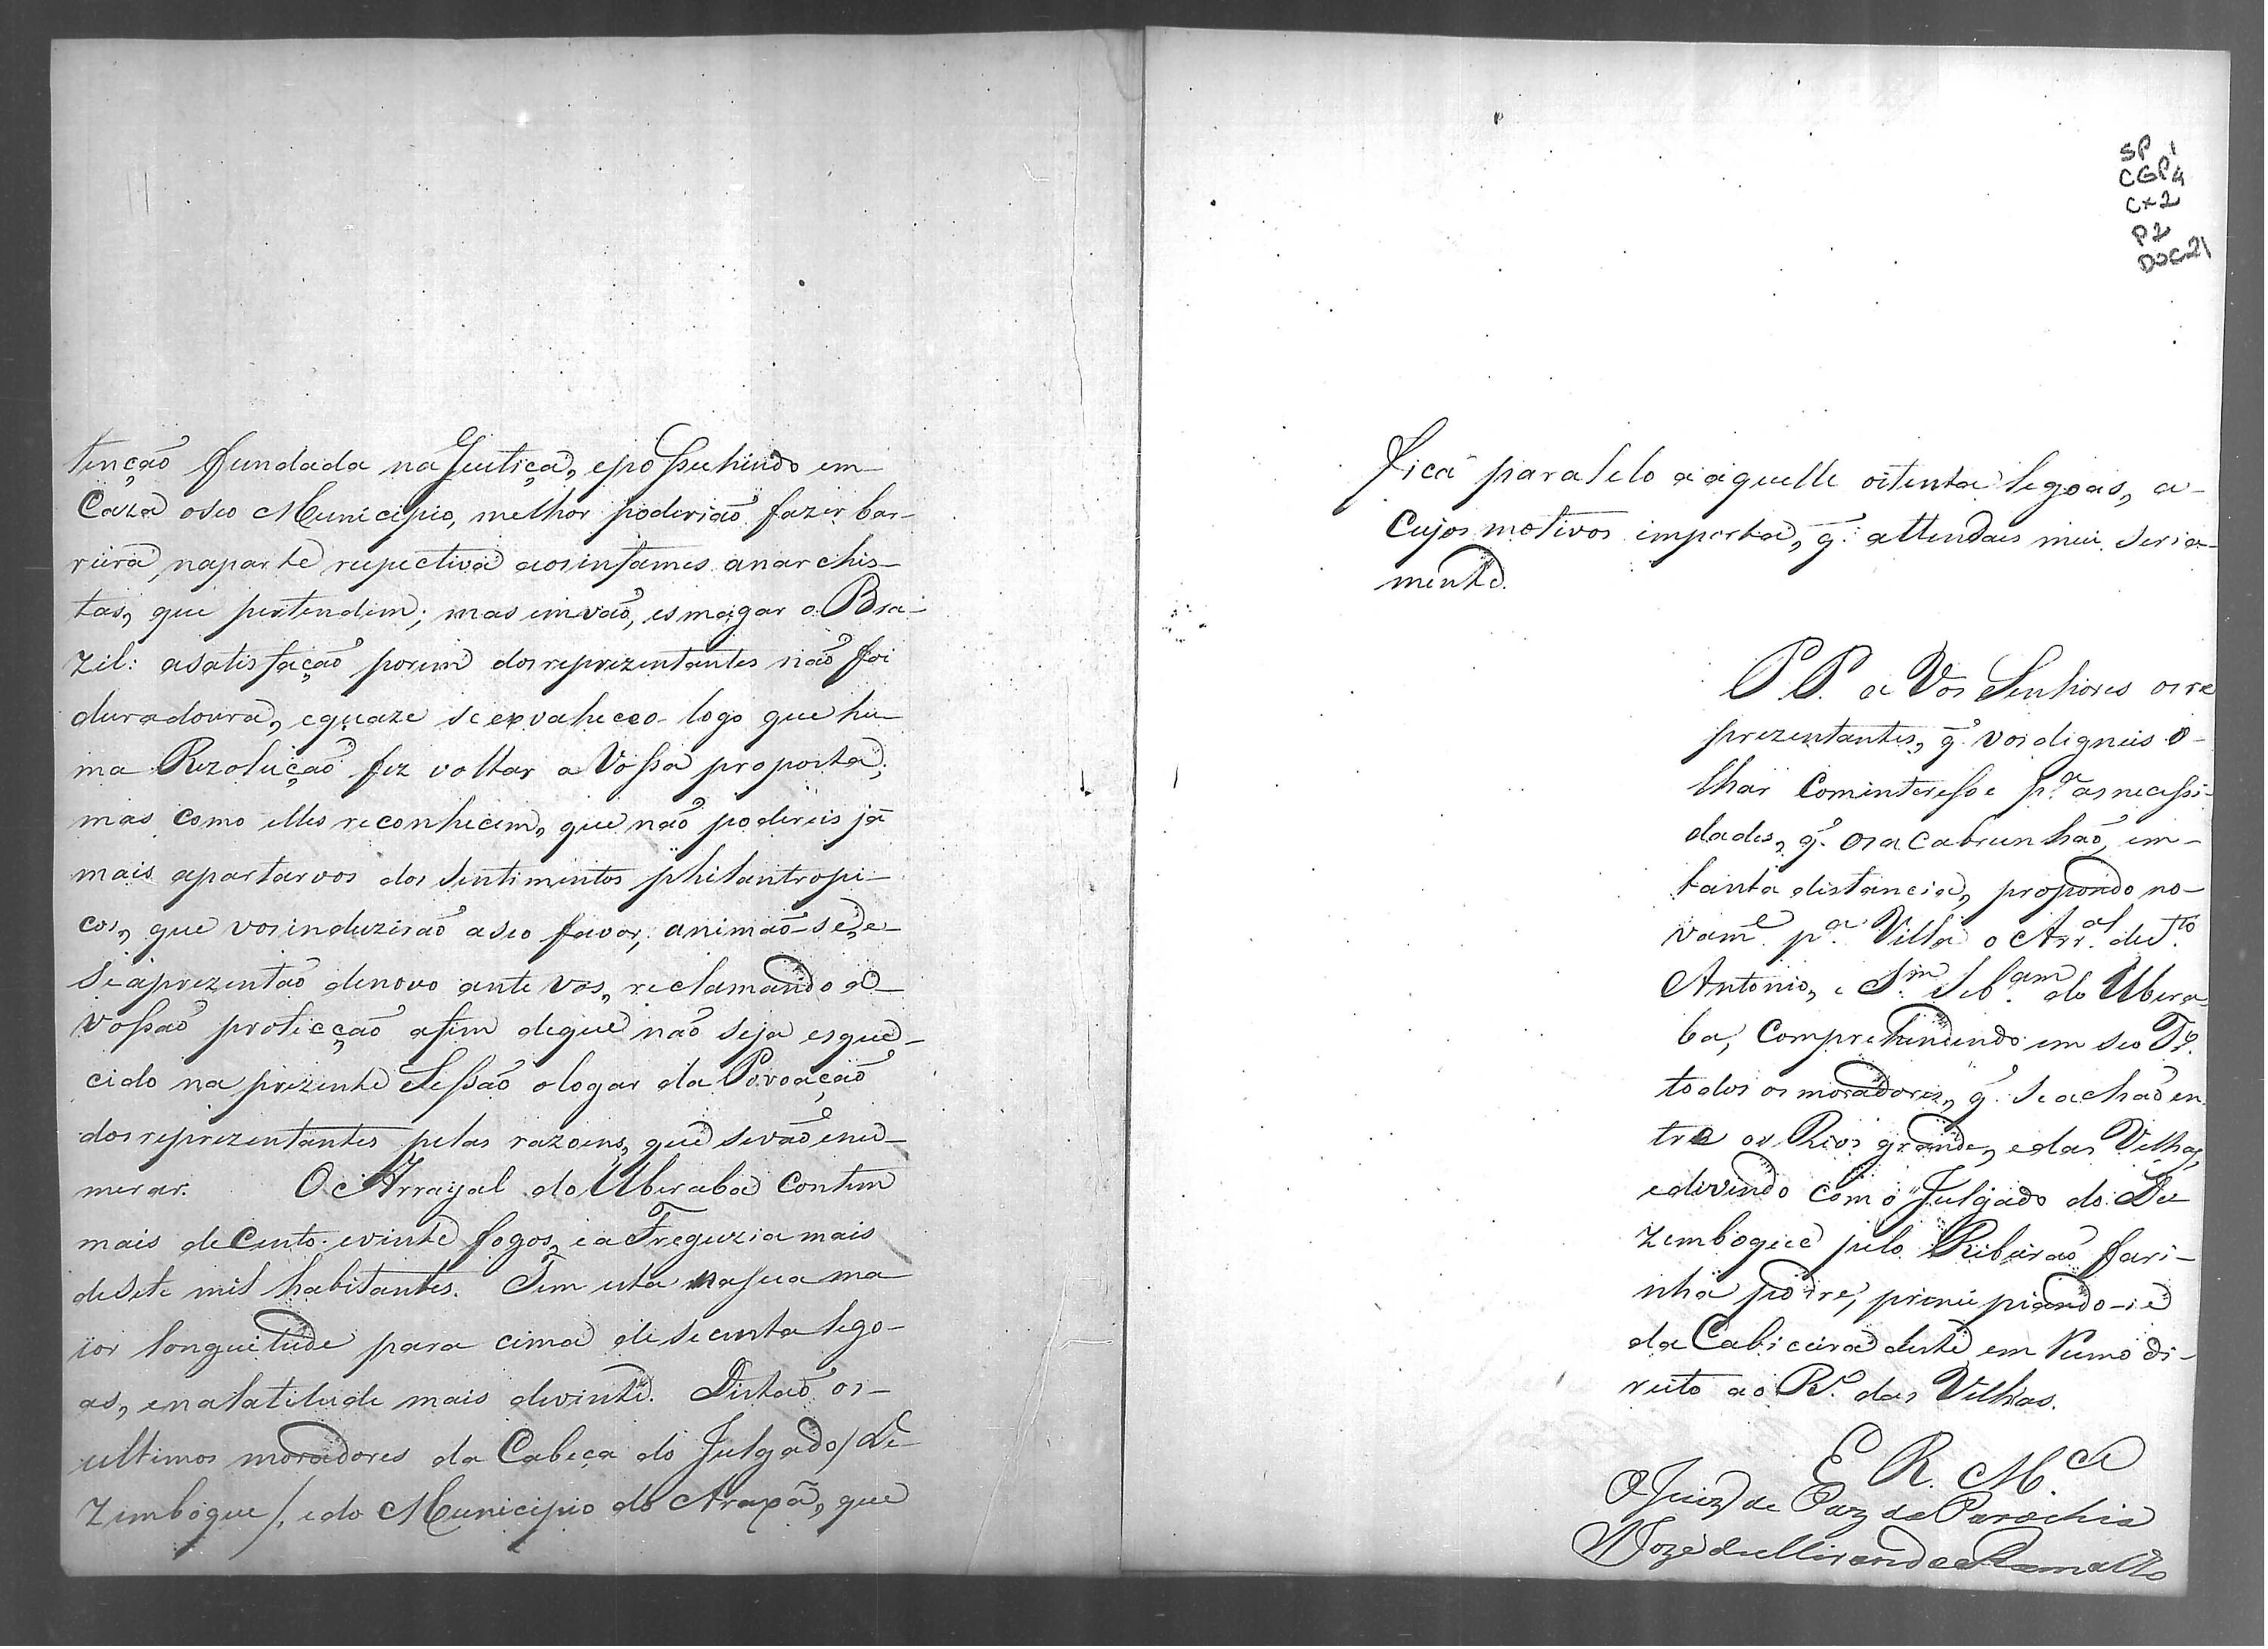 tenção fundada na Justiça, epossuhindo em
Caza oseo Municipio, melhor poderião fazer bar-
reira, naparte respectiva aosinfames anarchis-
tas, que pertendem; mas emvão, esmagar o Bra-
zil: asatisfação porem dosreprezentantes não foi
duradoura, equaze seexvaheceo logo que hu-
ma Rezolução fez voltar a Vossa proposta;
mas como elles reconhecem, que não podereis já
mais apartarvos dos sentimentos philantropi-
cos, que vosinduzirão aseo favor, animão-se, e
seaprezentão denovo ante vos, reclamando a
vossa protecção afim deque não seja esque-
cido na prezente Sessão ologar da Povoação
dosreprezentantes pelas razoens, que sevão enu-
merar. O Arrayal do Uberaba Contem
mais deCento evinte fogos, e a Freguzia mais
desete mil habitantes. Tem esta nasua ma
ior longuitude para cima de secenta lego-
as, enalatitude mais devinte. Distão os
ultimos moradores da Cabeça do Julgado/De
zemboque/, edo Municipio do Araxá, que
SP 1
CGP 4
Cx 2
P2
DOC 21
fica paralelo aaquelle oitenta legoas, a-
Cujos motivos importa, q. attendais mui seria-
mente.
P P. a Vos Senhores osre
prezentantes, q. vosdigneis o-
lhar Cominteresse p.a asnecessi-
dades, q. osacabrunhão, em-
tanta distancia, propondo no-
vam.e p.a Villa o Arr.al de S.to
Antonio, e S.m Seb.am do Ubera-
ba, Comprehendendo em seo T.o
todos os moradores, q. seachão en-
tre os Rios grande, edas Velhas,
edivindo com o Julgado do De
zemboque pelo Ribeirão fari-
nha podre, principiando-se
da Cabiceira deste em Rumo di-
reito ao R.o das Velhas.
E R. M.ce
O Juiz de Paz da Parochia
Joze de Miranda Ramalho